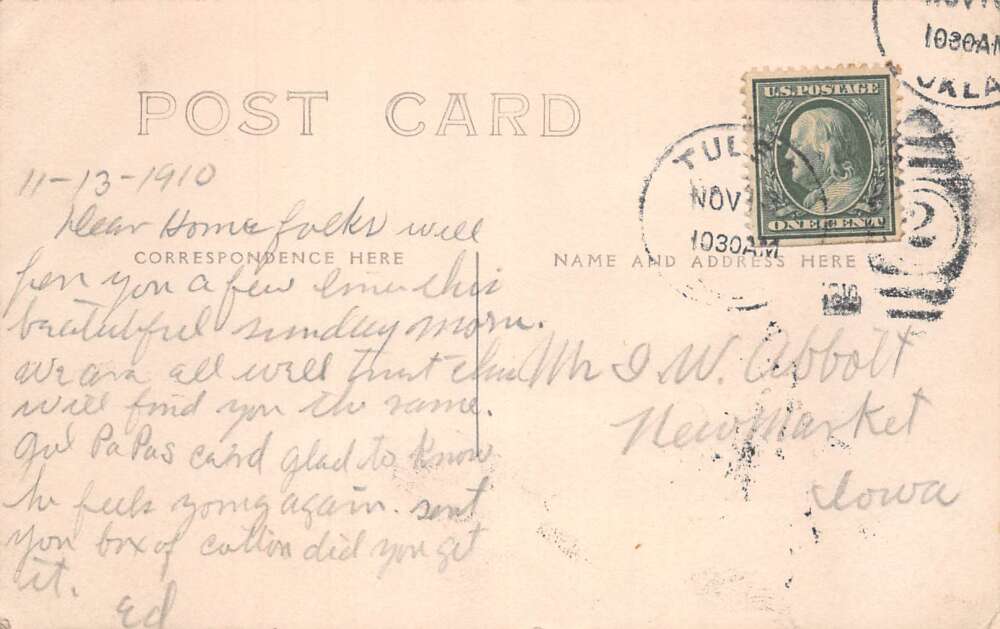 NOV
1030AM
OKLA
U.S. POSTAGE
ONE CENT
POST CARD
TULS
NOV
1030AM
2
1910
11-13-1910
Dear Home folks will
CORRESPONDENCE HERE
pen you a few lines this
beautuful sunday morn.
we are all well trust this
will find you the same.
Got PaPas card glad to know
he feels young again. sent
you box of cotton did you get
it.
Ed
NAME AND ADDRESS HERE
Mr I. W. Abbott
New Market
Iowa